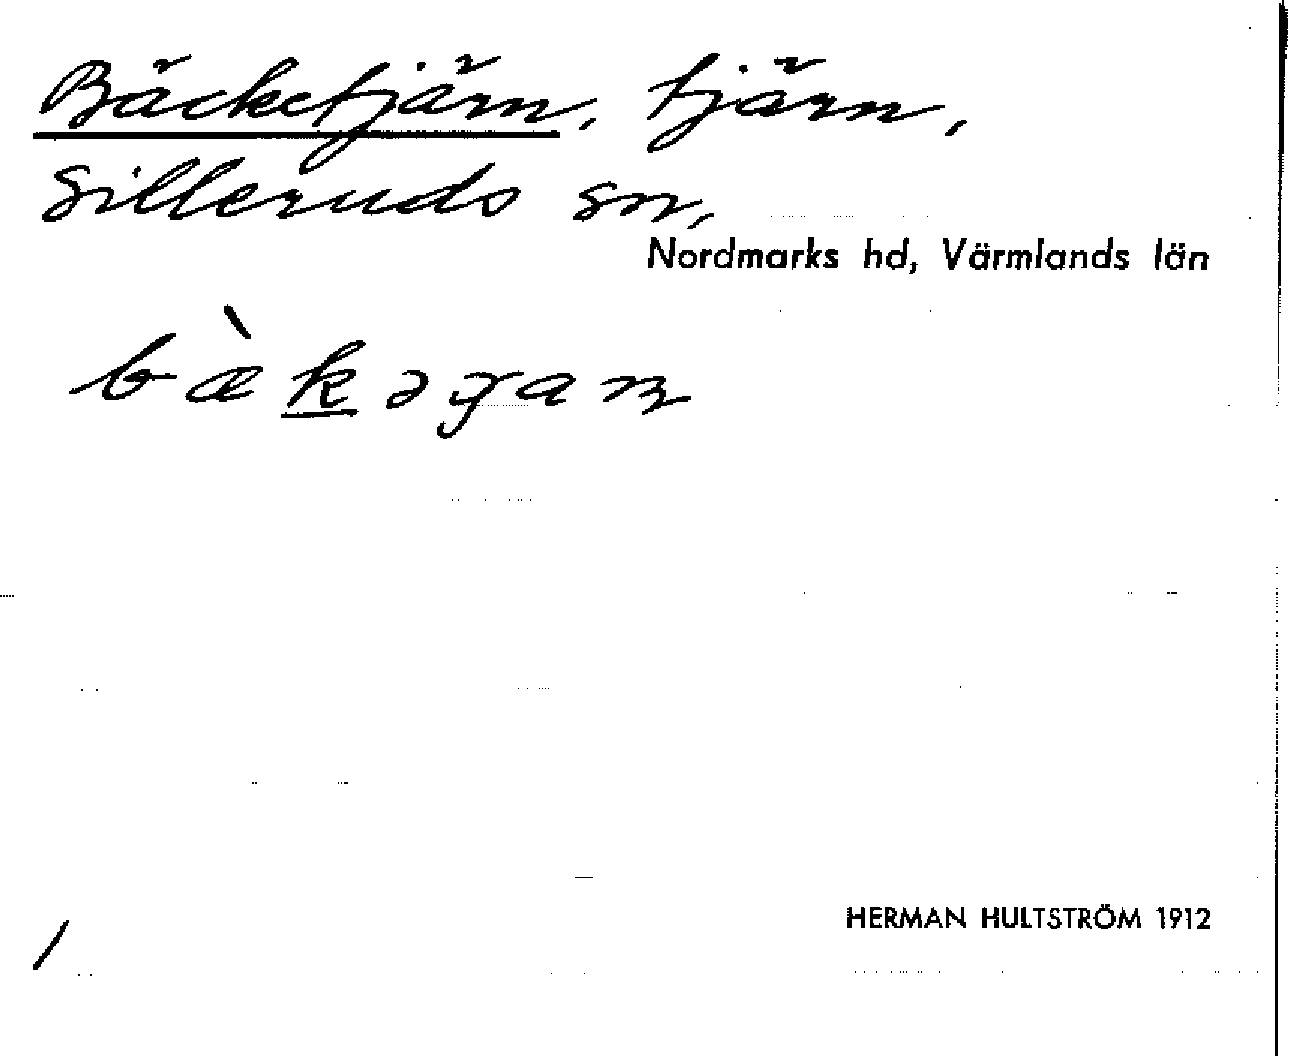 Bäcketjärn, tjärn,
Silleruds sn,
Nordmarks hd, Värmlands län
HERMAN HULTSTRÖM 1912
/